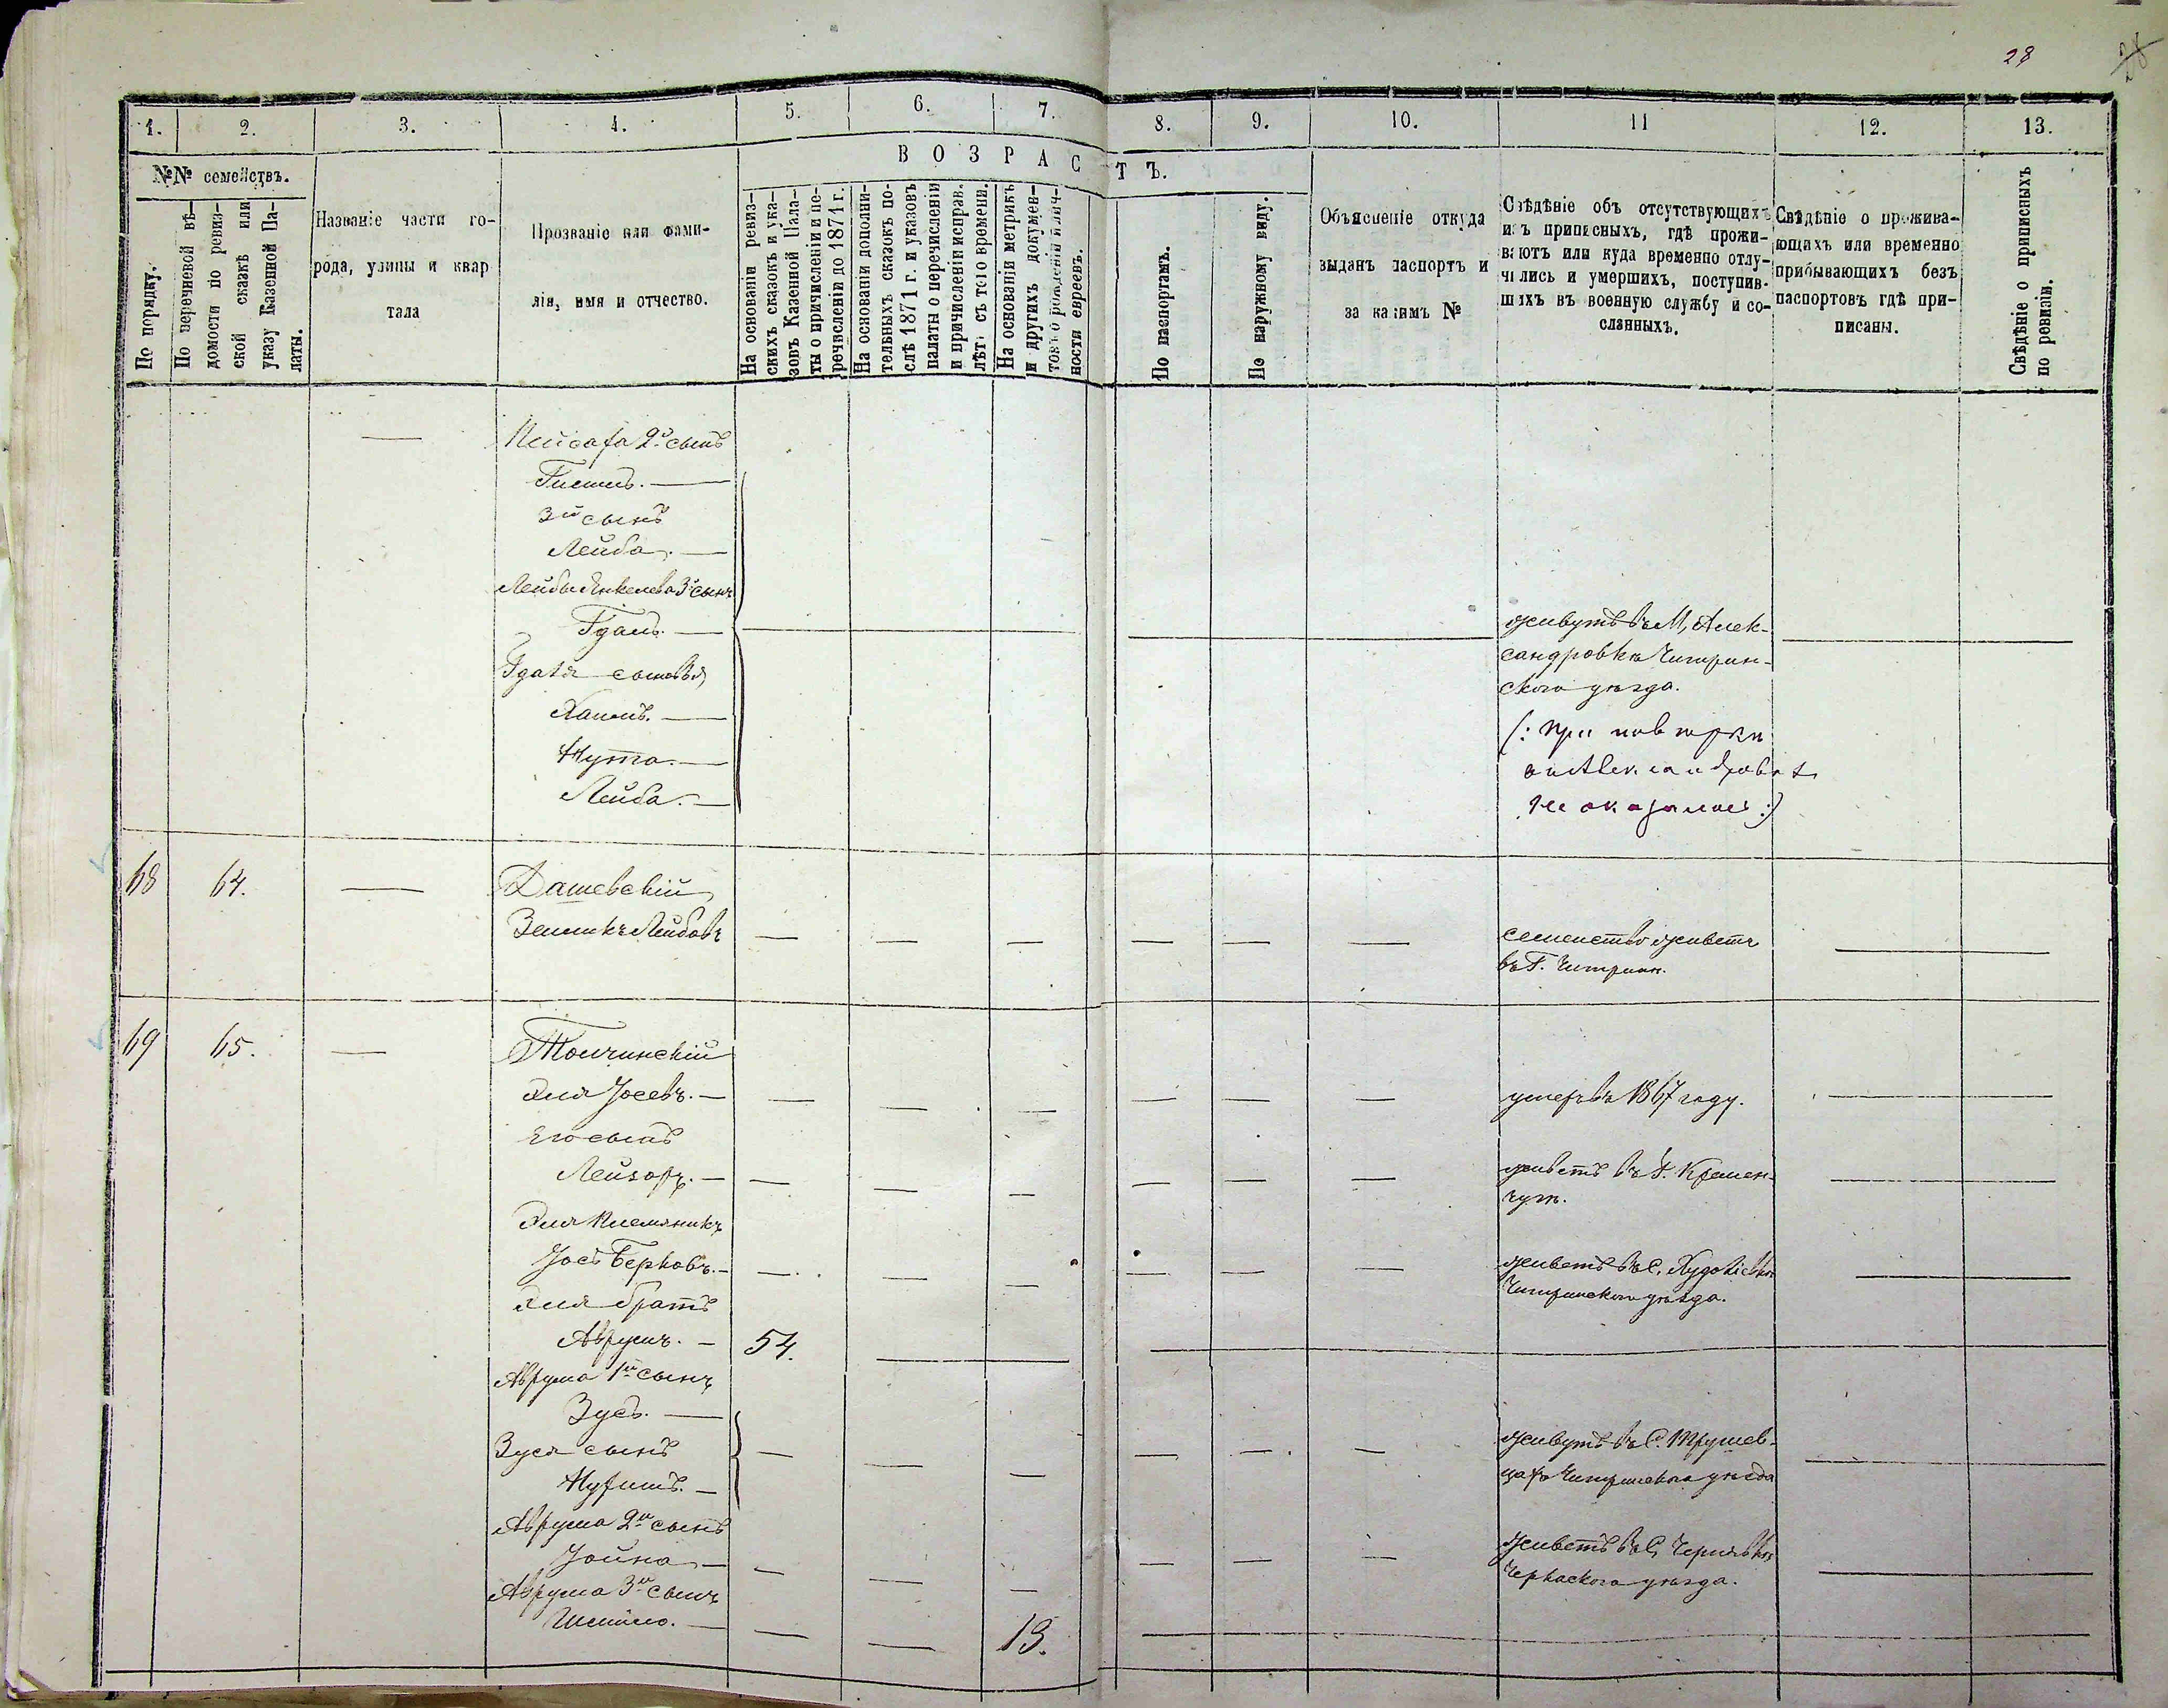 28
28
1.
2.
3.
4.
5.
6.
7.
8.
9.
10.
11
12.
13.
№№ семействъ.
ВОЗРАСТЪ.
По порядку.
По перечневой вѣ-
домости по ревиз-
ской сказкѣ или
указу Казенной Па-
латы.
Названіе части го-
рода, улицы и квар
тала
Прозваніе или фами-
лія, имя и отчество.
На основаніи ревиз-
скихъ сказокъ и ука-
зовъ Казенной Пала-
ты о причисленіи и пе-
речисленіи до 1871 г.
На основаніи дополни-
тельныхъ сказокъ по-
слѣ 1871 г. и указовъ
палаты о перечисленіи
и причисленіи исправ.
лѣт. съ того времени.
На основаніи метрикъ
и другихъ докумен-
товъ о рожденіи и лич-
ности евреевъ.
По паспортамъ.
По наружному виду.
Объясненіе откуда
выданъ паспортъ и
за какимъ №
Свѣдѣніе объ отсутствующихъ
изъ приписныхъ, гдѣ прожи-
вяютъ или куда временно отлу-
чились и умершихъ, поступив-
шихъ въ военную службу и со-
сланныхъ.
Свѣдѣніе о прожива-
ющихъ или временно
прибывающихъ безъ
паспортовъ гдѣ при-
писаны.
Свѣдѣніе о приписныхъ
по ревизіи.
Пейсаха 2й сынъ
3й сынъ
Лейба. —
Лейбы Янкелева 3й сынъ
Гдаль. —
Гдаля сыновья
Хаимъ. —
Нута. —
Лейба. —
живутъ въ М, Алек-
сандровкѣ Чигирин-
скаго уѣзда.
(: при повѣркѣ
въ Александровкѣ
не оказались :)
68
64.
Дашевскій
Зельманъ Лейбовъ
семейство живетъ
въ Г. Чигиринѣ.
69
65.
Точинскій
Эля Іосевъ. —
умеръ въ 1867 году.
Его сынъ
Лейзоръ. —
живетъ въ Г. Кремен-
чугѣ.
Эля племянникъ
Іосъ Берковъ. —
живетъ въ С. Худоліевкѣ
Чигиринскаго уѣзда.
Эля братъ
Аврумъ. —
54.
Аврума 1й сынъ
Зусь. —
Зуся сынъ
Нухимъ. —
живутъ въ С. Трушев-
цахъ Чигиринскаго уѣзда
Аврума 2й сынъ
Іойна —
живетъ въ С, Чернявкѣ
Черкаскаго уѣзда.
Аврума 3й сынъ
13.